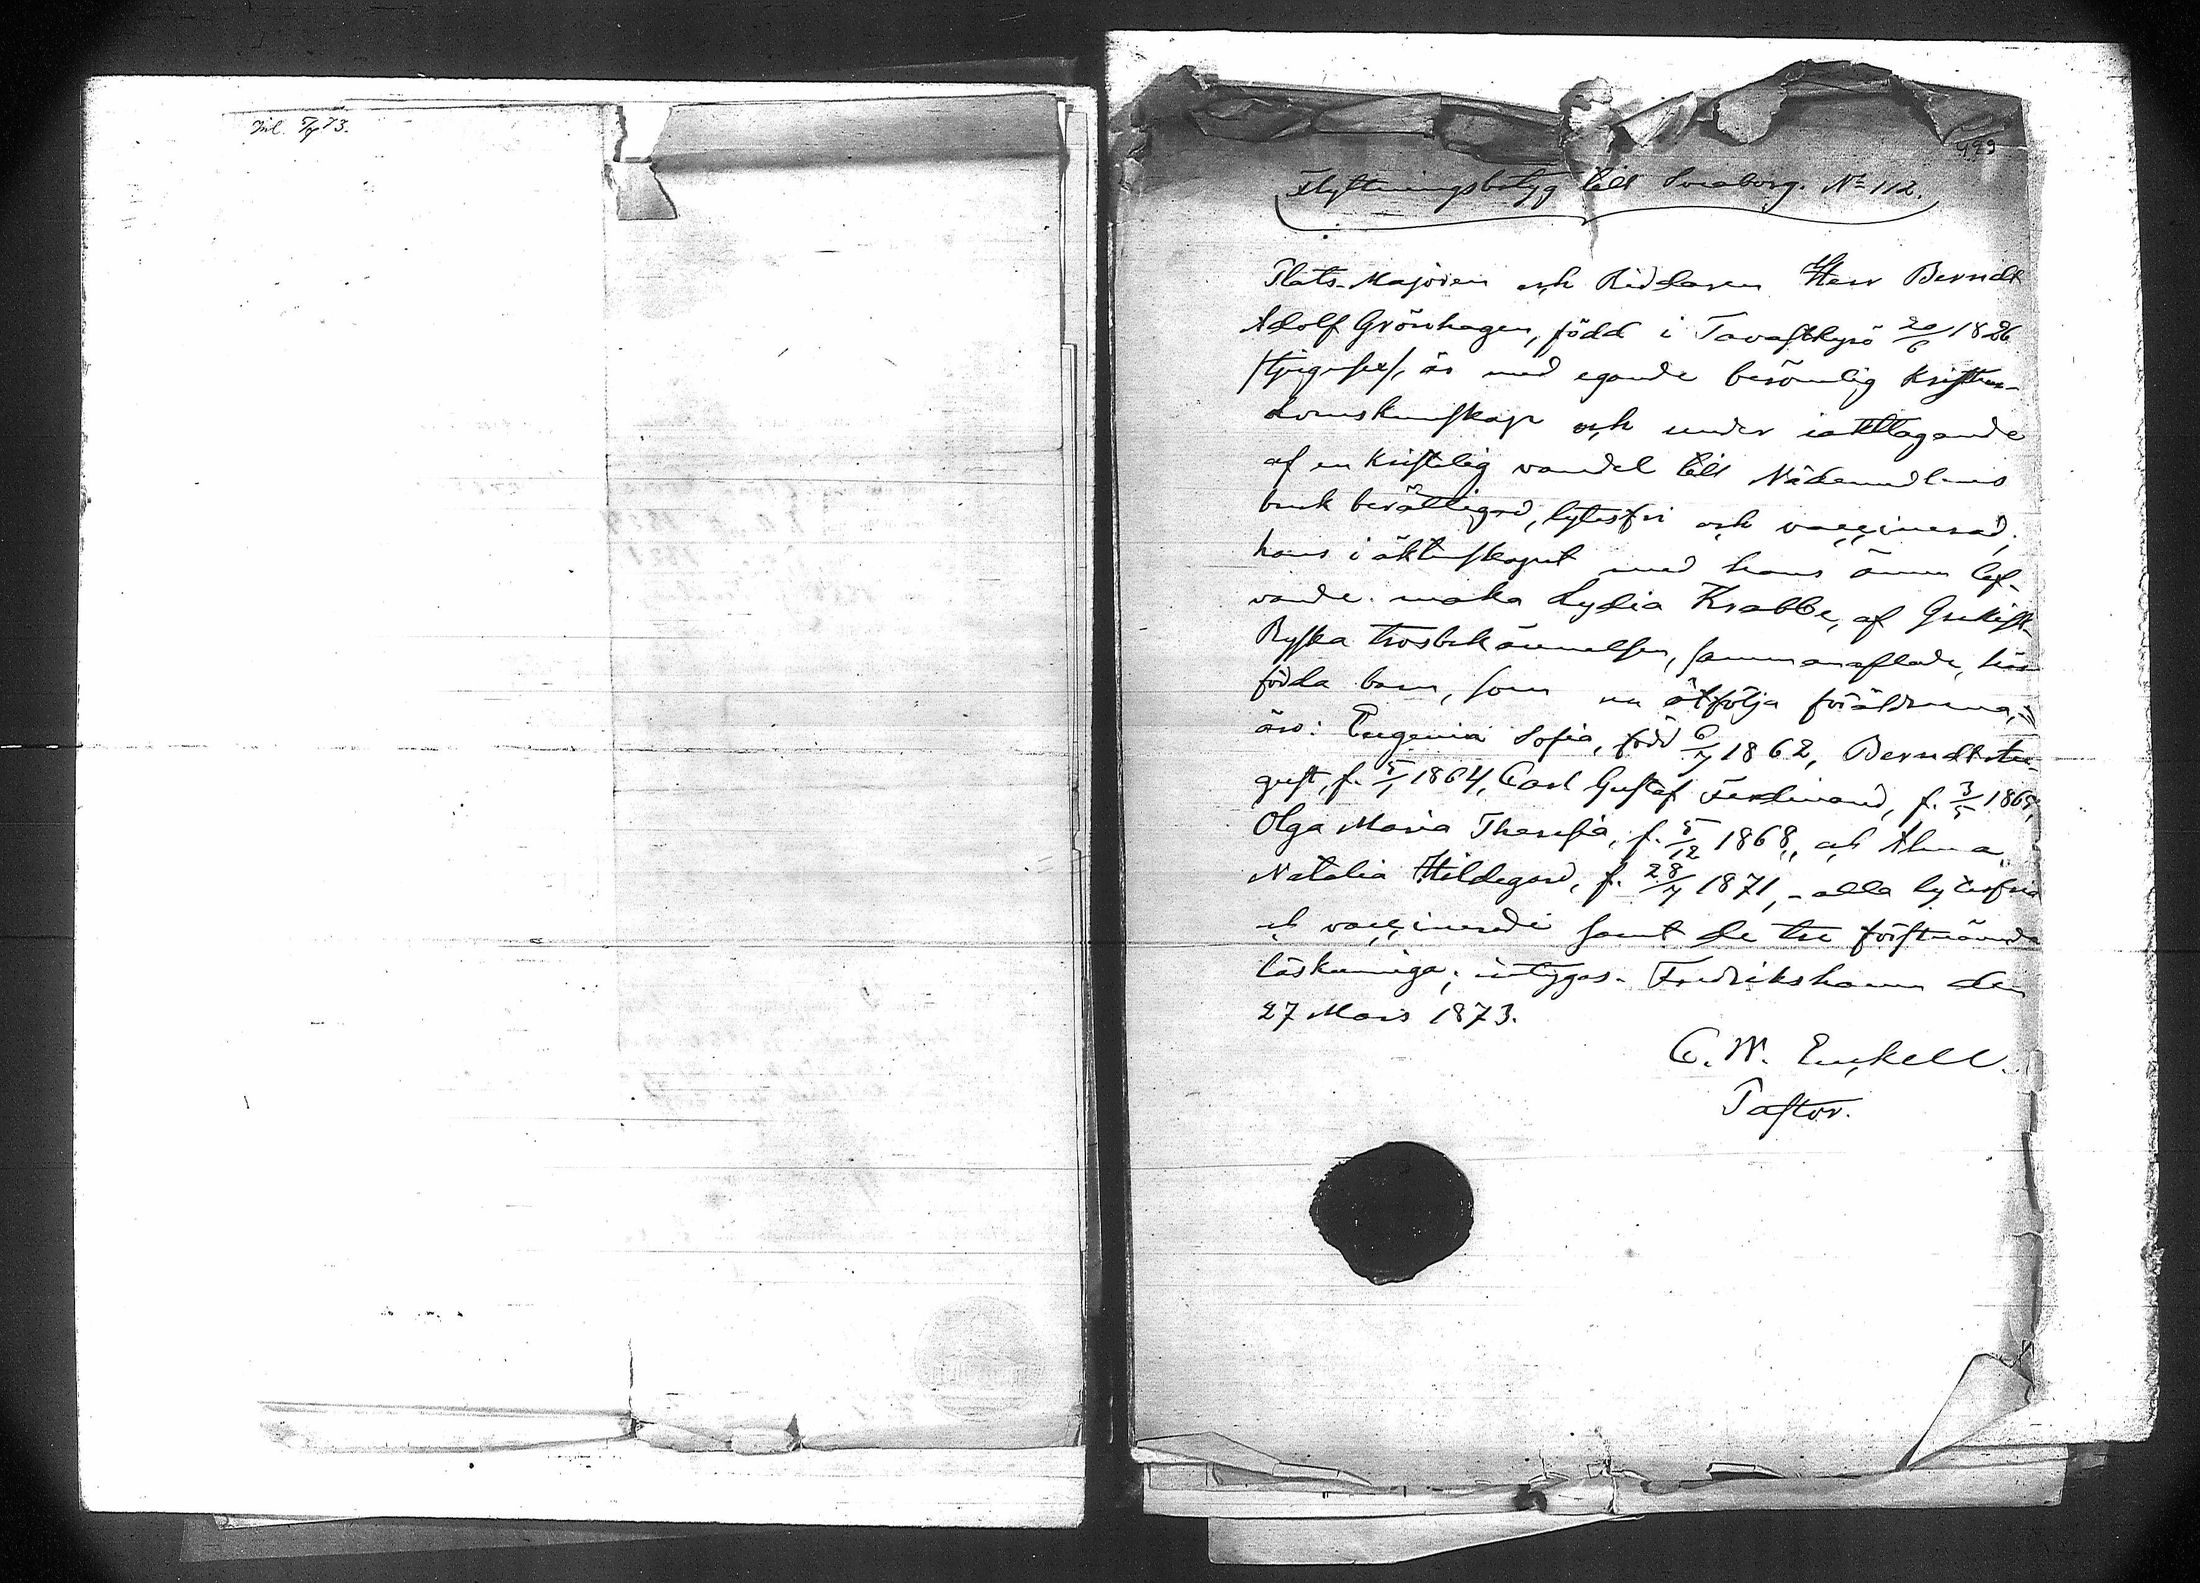 Inl. 5/4 73.
Flyttningsbetyg till Sveaborg. No 112.
Plats-Majoren och Riddaren Herr Berndt
Adolf Grönhagen, född i Tavastkyrö 20/6 1826
/tjugusex/, är med egande berömlig Kristen-
domskunskap och under iakttagande
af en Kristelig vandel till Nådemedlens
bruk berättigad, lytesfri och vaccinerad;
hans i äktenskapet med hans ännu lef-
vande maka Lydia Krabbe, af Grekisk-
Ryska trosbekännelsen, sammanaflade, här
födda barn, som nu åtfölja föräldrarna,
äro: Eugenia Sofia, född 6/7 1862, Berndt Au-
gust, f. 5/1 1864, Carl Gustaf Ferdinand, f. 3/5
Olga Maria Theresia, f. 5/12 1868, och Alma
Natalia Hildegard, f. 28/7 1871, - alla lytesfria
och vaccinerade samt de tre förstnämnda
läskunniga; intygas. Fredrikshamn den
27 Mars 1873.
C. W. Enckell.
Pastor.